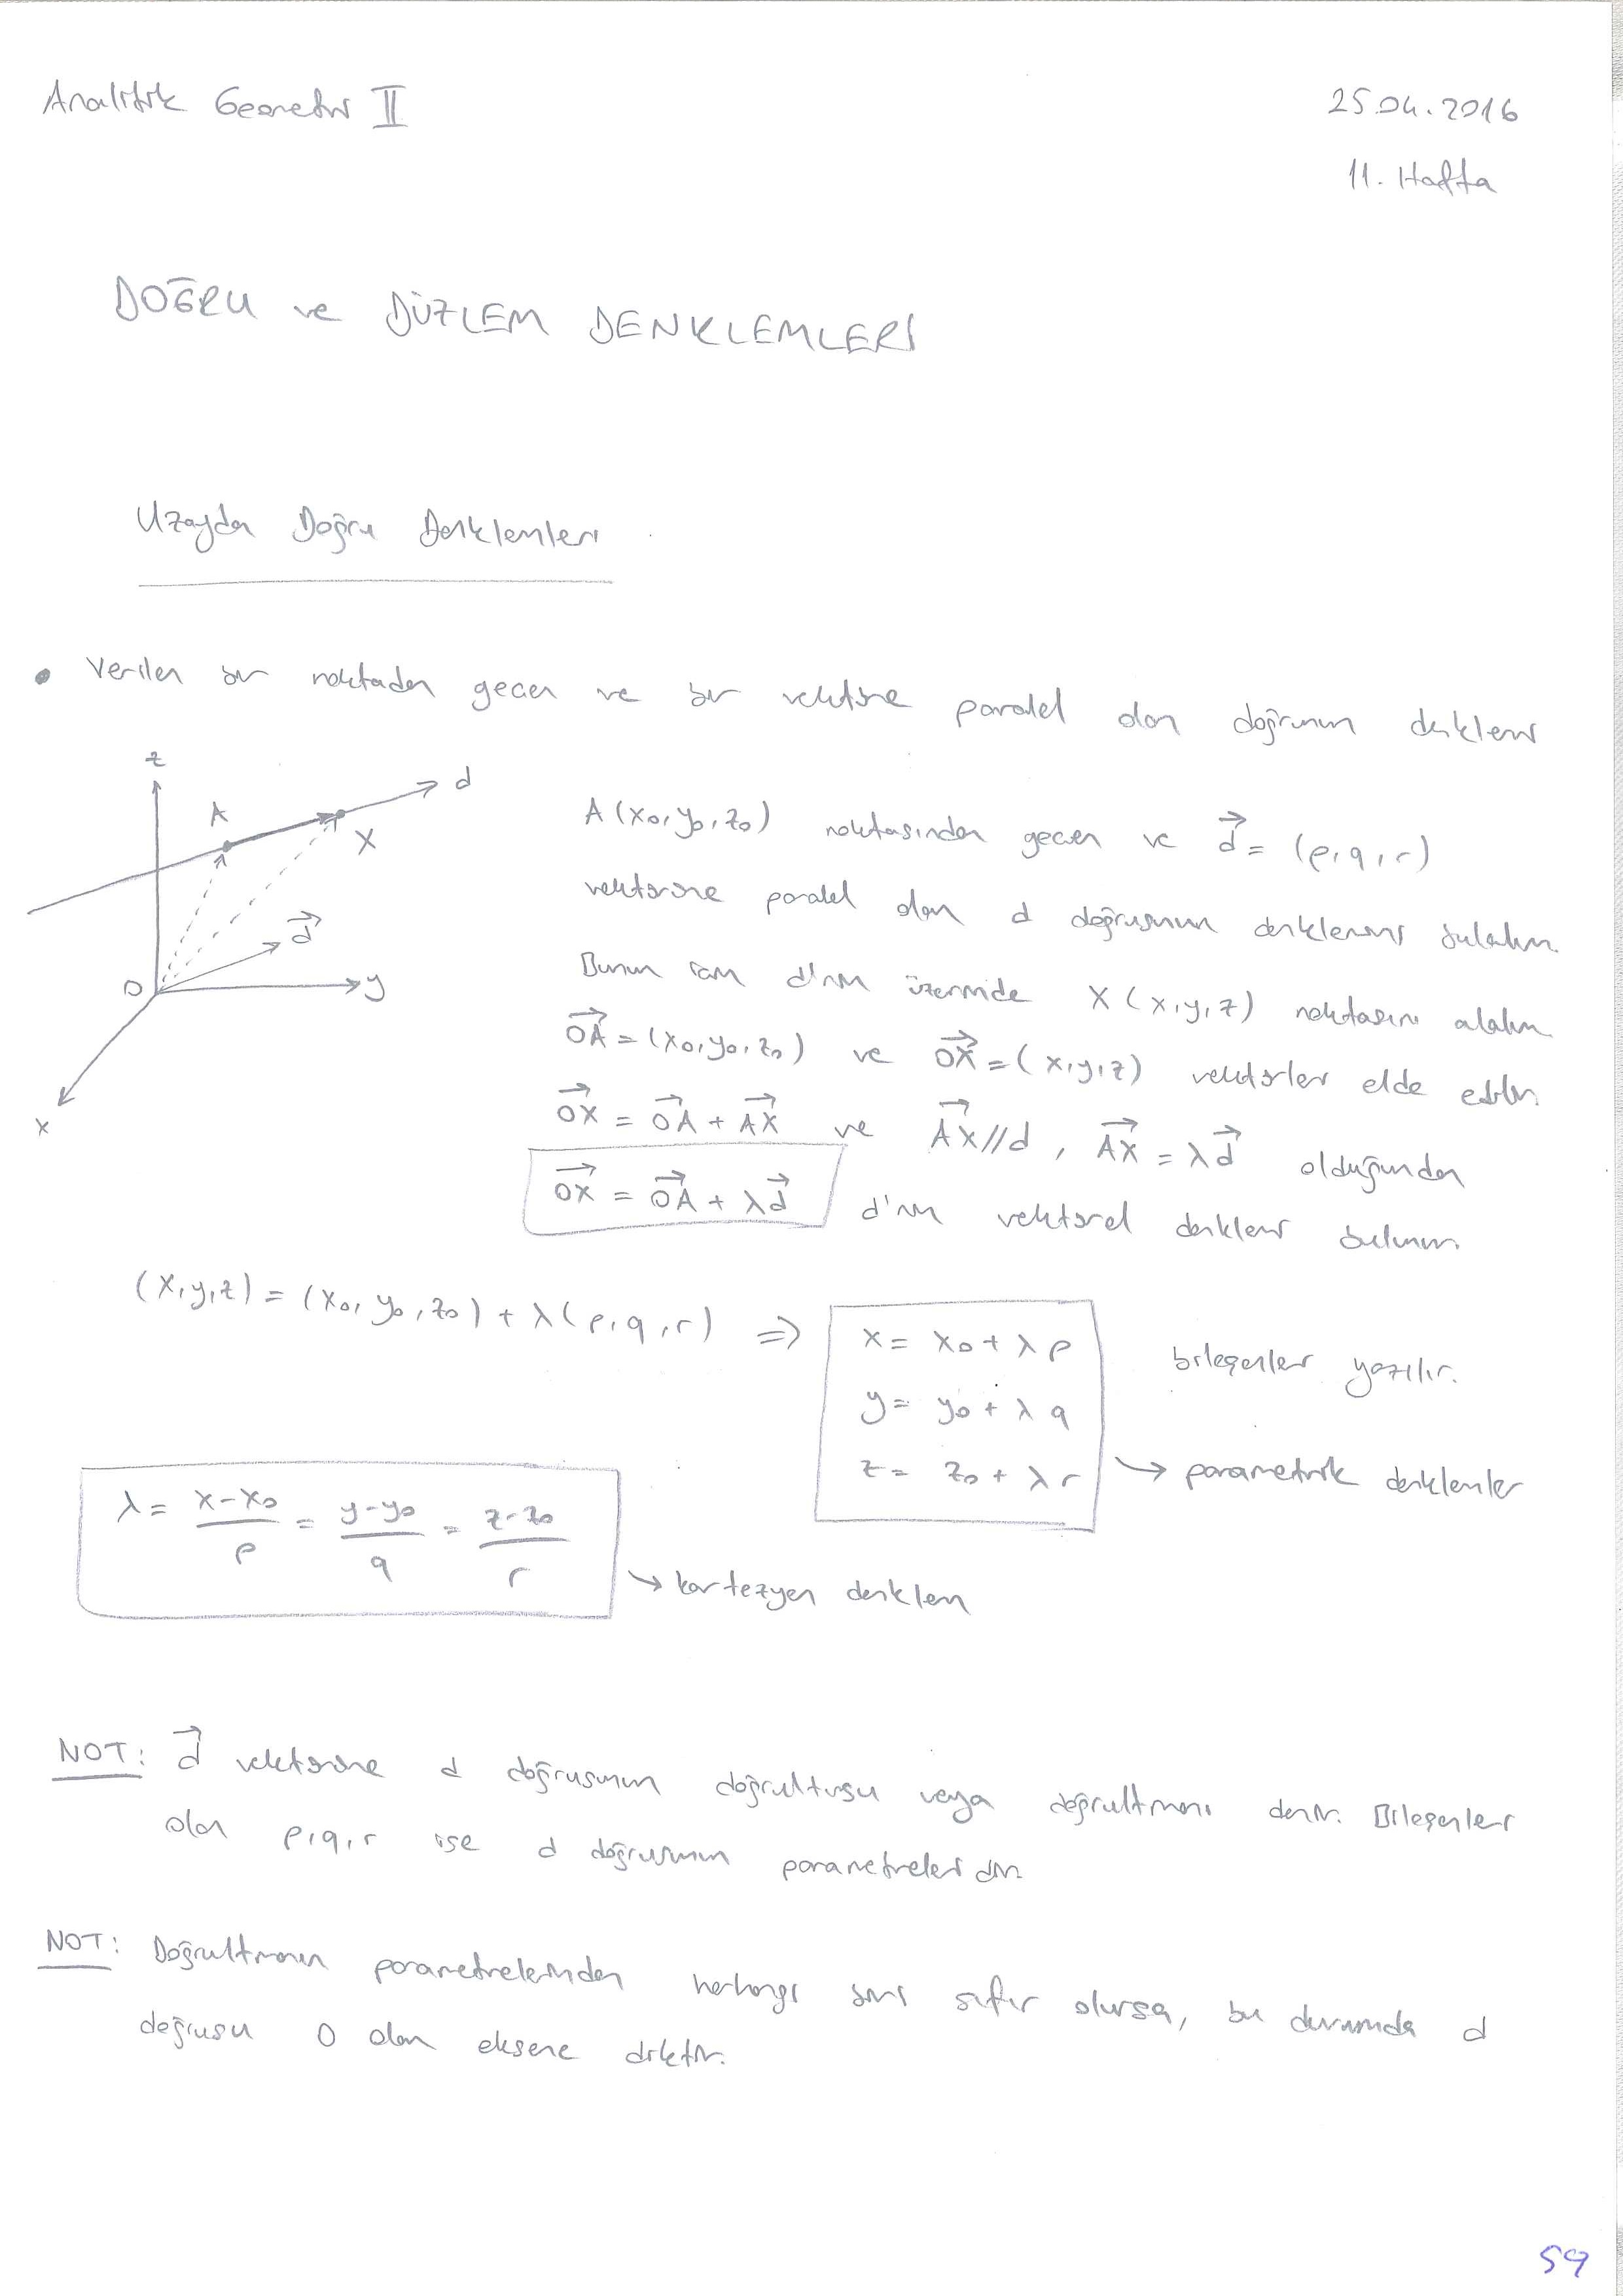 Analitik Geometri II
25.04.2016
11. Hafta
DOĞRU ve DÜZLEM DENKLEMLERİ
Uzayda Doğru Denklemleri
• Verilen bir noktadan geçen ve bir vektöre paralel olan doğrunun denklemi
z
A
d
X
d⃗
O
y
x
A(x₀, y₀, z₀) noktasından geçen ve d⃗ = (p, q, r)
vektörüne paralel olan d doğrusunun denklemini bulalım.
Bunun için d'nin üzerinde X(x, y, z) noktasını alalım
OA⃗ = (x₀, y₀, z₀) ve OX⃗ = (x, y, z) vektörler elde edilir.
OX⃗ = OA⃗ + AX⃗ ve AX⃗ // d , AX⃗ = λd⃗ olduğundan
OX⃗ = OA⃗ + λd⃗ d'nin vektörel denklemi bulunur.
(x, y, z) = (x₀, y₀, z₀) + λ(p, q, r) ⇒ x = x₀ + λp bileşenler yazılır.
y = y₀ + λq
z = z₀ + λr → parametrik denklemler
λ = (x-x₀)/p = (y-y₀)/q = (z-z₀)/r → kartezyen denklem
NOT: d⃗ vektörüne d doğrusunun doğrultusu veya doğrultmanı denir. Bileşenler
olan p, q, r ise d doğrusunun parametreleridir.
NOT: Doğrultmanın parametrelerinden herhangi birisi sıfır olursa, bu durumda d
doğrusu 0 olan eksene diktir.
59